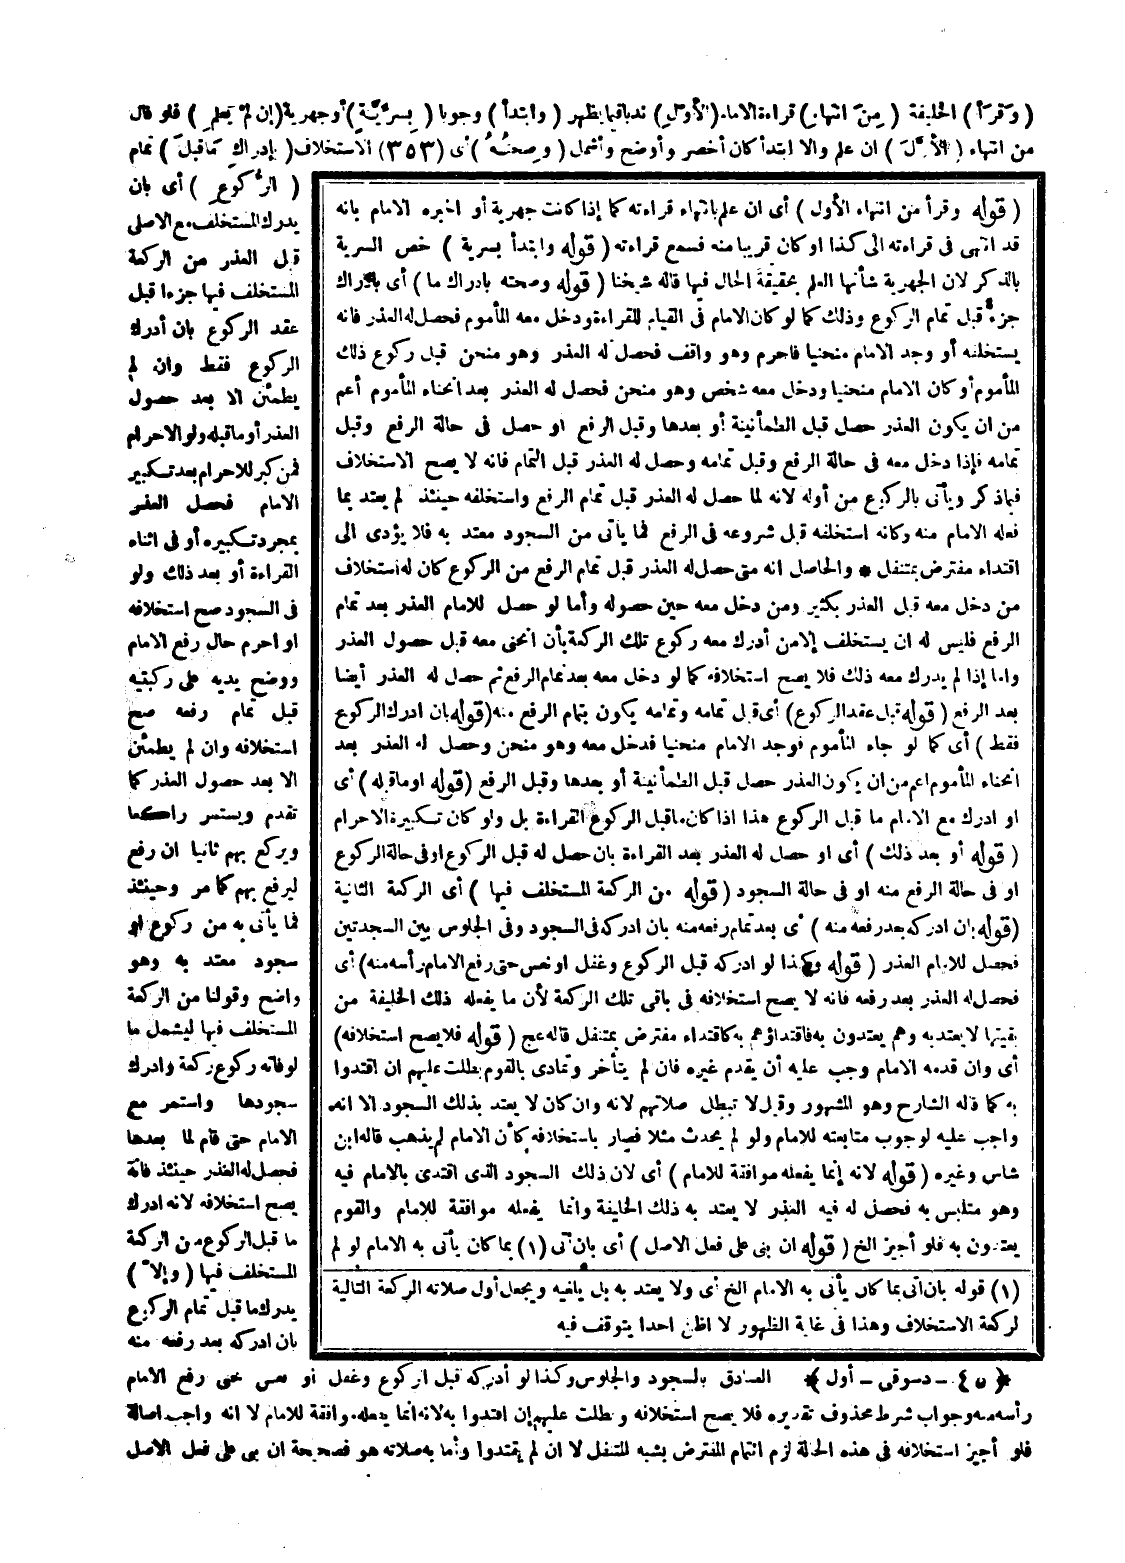 ( وَقَرَأَ ) الخليفة ( مِنَ انتهاءِ ) قراءة الامام ( الأَوَّلِ ) ندبا فيما يظهر ( وابتدأ ) وجوبا ( بِسِرِّيَّةٍ ) أو جهرية ( إن لَمْ يَعلمِ ) فلو قال
من انتهاء ( الأوَّلَ ) ان علم والا ابتدأ كان أخصر وأوضح وأشمل ( وصحتُهُ ) أى (٣٥٣) الاستخلاف ( بإدراكِ مَا قبلَ ) تمام
( الرُّكوعِ ) أى بان
يدرك المستخلف مع الاصلى
قبل العذر من الركعة
المستخلف فيها جزءا قبل
عقد الركوع بان أدرك
الركوع فقط وان لم
يطمئن الا بعد حصول
العذر أو ما قبله ولو الاحرام
فمن كبر للاحرام بعد تكبير
الامام فحصل العذر
بمجرد تكبيره أو فى اثناء
القراءة أو بعد ذلك ولو
فى السجود صح استخلافه
او احرم حال رفع الامام
ووضع يديه على ركبتيه
قبل تمام رفعه صح
استخلافه وان لم يطمئن
الا بعد حصول العذر كما
تقدم ويستمر راكعا
ويركع بهم ثانيا ان رفع
ليرفع بهم كما مر وحينئذ
فما يأتى به من ركوع او
سجود معتد به وهو
واضح وقولنا من الركعة
المستخلف فيها ليشمل ما
لو فاته ركوع ركعة وادرك
سجودها واستمر مع
الامام حتى قام لما بعدها
فحصل له العذر حينئذ فانه
يصح استخلافه لانه ادرك
ما قبل الركوع من الركعة
المستخلف فيها ( وإلاَّ )
يدرك ما قبل تمام الركوع
بان ادركه بعد رفعه منه
( قوله وقرأ من انتهاء الأول ) أى ان علم بانتهاء قراءته كما إذا كانت جهرية أو اخبره الامام بانه
قد انتهى فى قراءته الى كذا او كان قريبا منه فسمع قراءته ( قوله وابتدأ بسرية ) خص السرية
بالذكر لان الجهرية شأنها العلم بحقيقة الحال فيها قاله شيخنا ( قوله وصحته بادراك ما ) أى بادراك
جزء قبل تمام الركوع وذلك كما لو كان الامام فى القيام للقراءة ودخل معه المأموم فحصل له العذر فانه
يستخلفه أو وجد الامام منحنيا فاحرم وهو واقف فحصل له العذر وهو منحن قبل ركوع ذلك
المأموم أو كان الامام منحنيا ودخل معه شخص وهو منحن فحصل له العذر بعد انحناء المأموم أعم
من ان يكون العذر حصل قبل الطمأنينة أو بعدها وقبل الرفع او حصل فى حالة الرفع وقبل
تمامه فإذا دخل معه فى حالة الرفع وقبل تمامه وحصل له العذر قبل التمام فانه لا يصح الاستخلاف
فيما ذكر ويأتى بالركوع من أوله لانه لما حصل له العذر قبل تمام الرفع واستخلفه حينئذ لم يعتد بما
فعله الامام منه وكانه استخلفه قبل شروعه فى الرفع فما يأتى من السجود معتد به فلا يؤدى الى
اقتداء مفترض بمتنفل * والحاصل انه متى حصل له العذر قبل تمام الرفع من الركوع كان له استخلاف
من دخل معه قبل العذر بكثير ومن دخل معه حين حصوله وأما لو حصل للامام العذر بعد تمام
الرفع فليس له ان يستخلف إلا من أدرك معه ركوع تلك الركعة بأن انحنى معه قبل حصول العذر
واما إذا لم يدرك معه ذلك فلا يصح استخلافه كما لو دخل معه بعد تمام الرفع ثم حصل له العذر أيضا
بعد الرفع ( قوله قبل عقد الركوع) أى قبل تمامه وتمامه يكون بتمام الرفع منه (قوله بان ادرك الركوع
فقط ) أى كما لو جاء المأموم فوجد الامام منحنيا فدخل معه وهو منحن وحصل له العذر بعد
انحناء المأموم اعم من ان يكون العذر حصل قبل الطمأنينة أو بعدها وقبل الرفع (قوله او ما قبله ) أى
او ادرك مع الامام ما قبل الركوع هذا اذا كان ما قبل الركوع القراءة بل ولو كان تكبيرة الاحرام
( قوله أو بعد ذلك ) أى او حصل له العذر بعد القراءة بان حصل له قبل الركوع او فى حالة الركوع
او فى حالة الرفع منه او فى حالة السجود ( قوله من الركعة المستخلف فيها ) أى الركعة الثانية
(قوله بان ادركه بعد رفعه منه ) أى بعد تمام رفعه منه بان ادركه فى السجود وفى الجلوس بين السجدتين
فحصل للامام العذر ( قوله وكذا لو ادركه قبل الركوع وغفل او نعس حتى رفع الامام رأسه منه) أى
فحصل له العذر بعد رفعه فانه لا يصح استخلافه فى باقى تلك الركعة لأن ما يفعله ذلك الخليفة من
بقيتها لا يعتد به وهم يعتدون به فاقتداؤهم به كاقتداء مفترض بمتنفل قاله عج ( قوله فلا يصح استخلافه)
أى وان قدمه الامام وجب عليه أن يقدم غيره فان لم يتأخر وتمادى بالقوم بطلت عليهم ان اقتدوا
به كما قاله الشارح وهو المشهور وقيل لا تبطل صلاتهم لانه وان كان لا يعتد بذلك السجود الا انه
واجب عليه لوجوب متابعته للامام ولو لم يحدث مثلا فصار باستخلافه كأن الامام لم يذهب قاله ابن
شاس وغيره ( قوله لانه إنما يفعله موافقة للامام ) أى لان ذلك السجود الذى اقتدى بالامام فيه
وهو متلبس به فحصل له فيه العذر لا يعتد به ذلك الخليفة وانما يفعله موافقة للامام والقوم
يعتدون به فلو أجيز الخ ( قوله ان بنى على فعل الاصل ) أى بان أتى (١) بما كان يأتى به الامام لو لم
(١) قوله بان أتى بما كان يأتى به الامام الخ أى ولا يعتد به بل يلغيه ويجعل أول صلاته الركعة التالية
لركعة الاستخلاف وهذا فى غاية الظهور لا اظن احدا يتوقف فيه
﴿ ٤٥ – دسوقى – أول ﴾ الصادق بالسجود والجلوس وكذا لو أدركه قبل الركوع وغفل أو نعس حتى رفع الامام
رأسه منه وجواب شرط محذوف تقديره فلا يصح استخلافه وبطلت عليهم إن اقتدوا به لانه انما يفعله موافقة للامام لا انه واجب اصالة
فلو أجيز استخلافه فى هذه الحالة لزم ائتمام المفترض بشبه المتنفل لا ان لم يقتدوا وأما به صلاته هو فصحيحة ان بنى على فعل الاصل